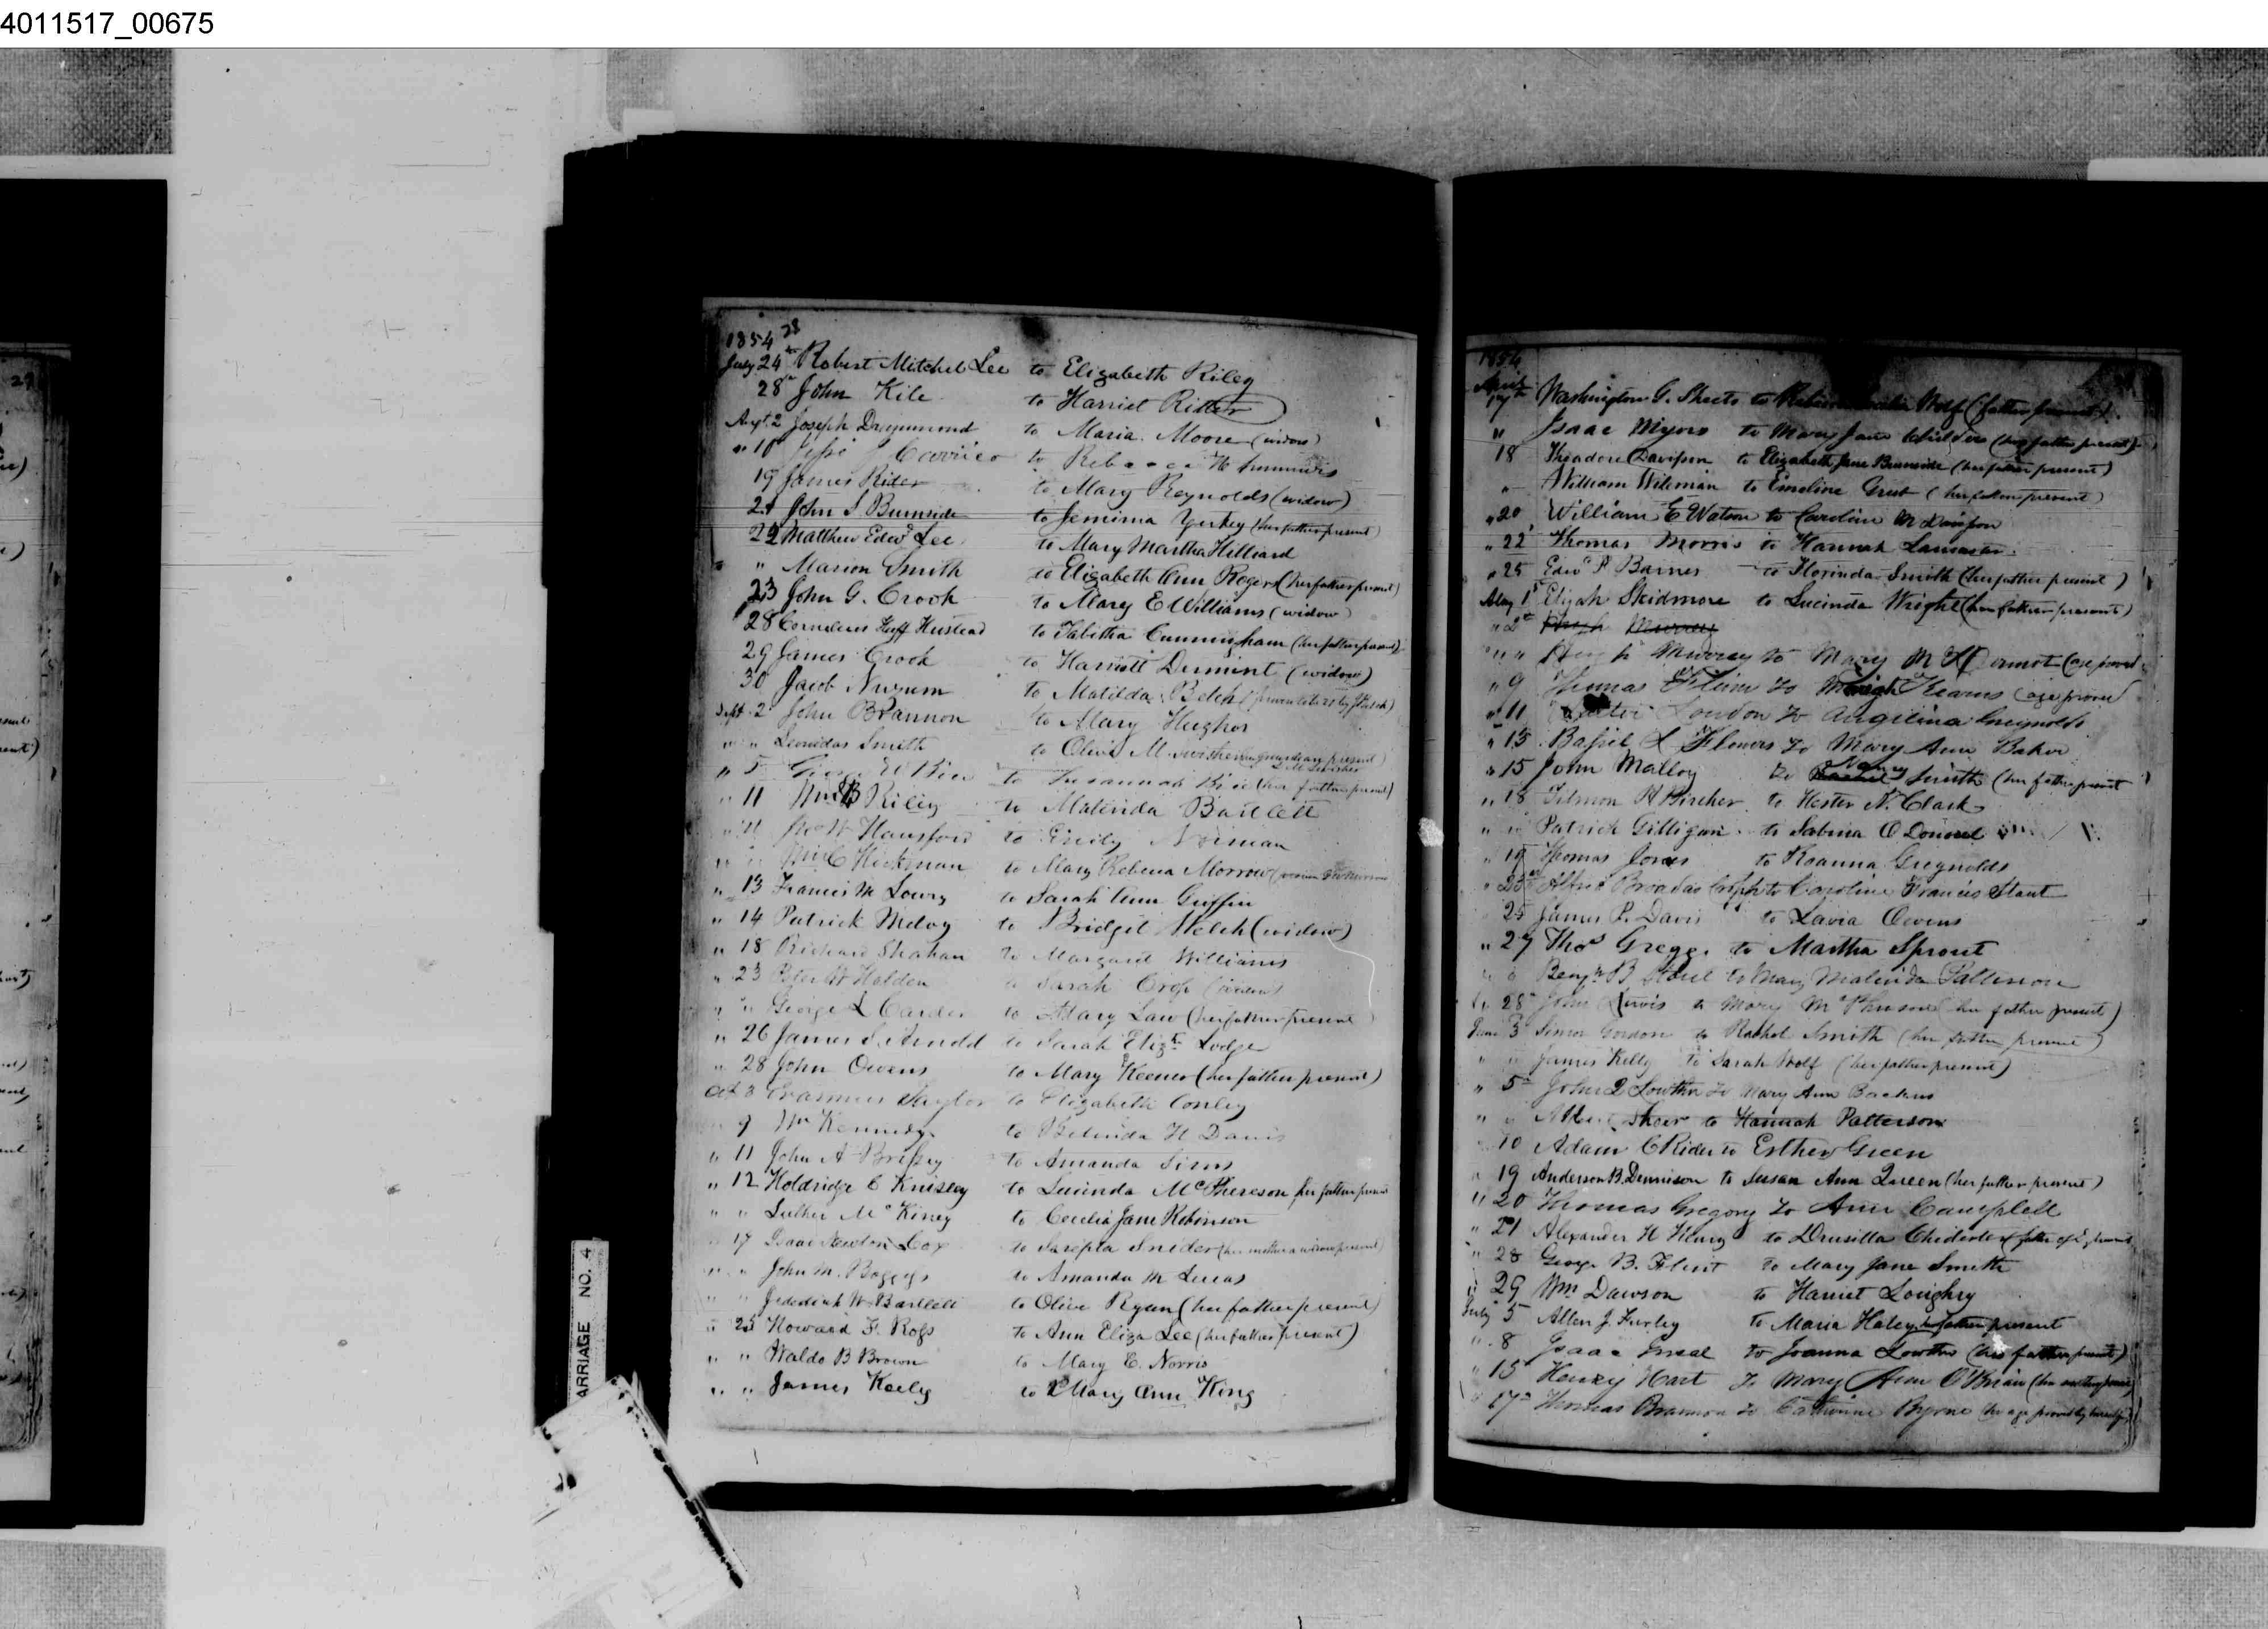 4011517_00675
29
1854 28
July 24th Robert Mitchel Lee to Elizabeth Riley
28th John Kile to Harriet Ritter
Augt. 2 Joseph Drummond to Maria Moore (widow)
" 10 Carrico to Rebecca
19 James Rider to Mary Reynolds (widow)
21 John S Burnside to Jemima Yerkey (her father present)
22 Matthew Edwd Lee to Mary Martha Hilliard
" Marion Smith to Elizabeth Ann Rogers (her father present)
23 John G. Crook to Mary E Williams (widow)
28 Cornelius Huff Hustead to Tabitha Cunningham (her father present)
29 James Crook to Harriett Dement (widow)
30 Jacob Nuzum to Matilda Belch
Sept. 2 John Brannon to Mary Hughes
" " Leonidas Smith to Olive M. guardian present
" 5 George W Bice to Susannah Bice (her father present)
" 11 Wm B Riley to Malinda Bartlett
" 11 Hansford to Emily Norman
" " Wm C Hickman to Mary Rebecca Morrow
" 13 Francis M Lowry to Sarah Ann Griffin
" 14 Patrick Meloy to Bridget Welch (widow)
" 18 Richard Shahan to Margaret Williams
" 23 Peter W Holden to Sarah Crop (widow)
" " George L Carder to Mary Law (her father present)
" 26 James S. Arnold to Sarah Elizth Lodge
" 28 John Owens to Mary Keener (her father present)
Oct 3 Erasmus Taylor to Elizabeth Conley
9 Wm Kennedy to Belinda H Davis
" 11 John A to Amanda Sims
" 12 Holdridge C Knisley to Lucinda McPhereson her father present
" " Luther McKiney to Cecelia Jane Robinson
" 17 Isaac Newton Cox to Sarepta Snider (her mother a widow present)
" " John M. Boggess to Amanda M Lucas
" " Jedediah W Bartlett to Olive Ryan (her father present)
" 25 Howard F. Ross to Ann Eliza Lee (her father present)
" " Waldo B Brown to Mary E. Norris
" " James Keely to Mary Ann King
ARRIAGE NO. 4
1854
April 17th Washington G. Sheets to Wolf (father present)
" Isaac Myers to Mary Jane Childers (her father present)
18 Theadore Davisson to Elizabeth Jane Burnside (her father present)
" William Wileman to Emeline Grub (her father present)
" 20 William E Watson to Caroline M Davisson
" 22 Thomas Morris to Hannah
" 25 Edwd P Barnes to Florinda Smith (her father present)
May 1st Elijah Skidmore to Lucinda Wright (her father present)
" 2nd Hugh Murray
" " Hugh Murray to Mary McDermot (age proved
" 9 Thomas Flinn to Kearns (age proved
" 11 London to Angelina Greynolds
" 13 Bassil L Flowers to Mary Ann Baker
" 15 John Malloy to Nancy Smith (her father present
" 18 Tilmon H Bircher to Hester N. Clark
" " Patrick Gilligan to Sabina O Donnel
" 19 Thomas Jones to Roanna Greynolds
" 23rd Alfred Broadas Cropp to Caroline Francis Stout
25 James P. Davis to Lavia Owens
" 27 Thos Gregg. to Martha Sprout
" " Benjn B Stout to Mary Malinda Patterson
" 28th John Lewis to Mary her father present)
June 3 Simon Gordon to Rachel Smith (her father present)
" " James Kelly to Sarah Wolf (her father present)
" 5th John Q Lowther to Mary Ann Backus
" " Albert Sheer to Hannah Patterson
" 10 Adam C Rider to Esther Green
" 19 Anderson B. Dennison to Susan Ann Queen (her father present)
" 20 Thomas Gregory to Ann Campbell
" 21 Alexander H Henry to Drusilla Chidester
" 28 George B. Flint to Mary Jane Smith
" 29 Wm Dawson to Harriet Loughry
July 5 Allen J. Furley to Maria Haley her father present
" 8 Isaac to Joanna Lowther (her father present)
" 15 Henry Hart to Mary Ann O'Brian (her
" 17th Thomas Brannon to Catherine Byrne (her age proved by herself)